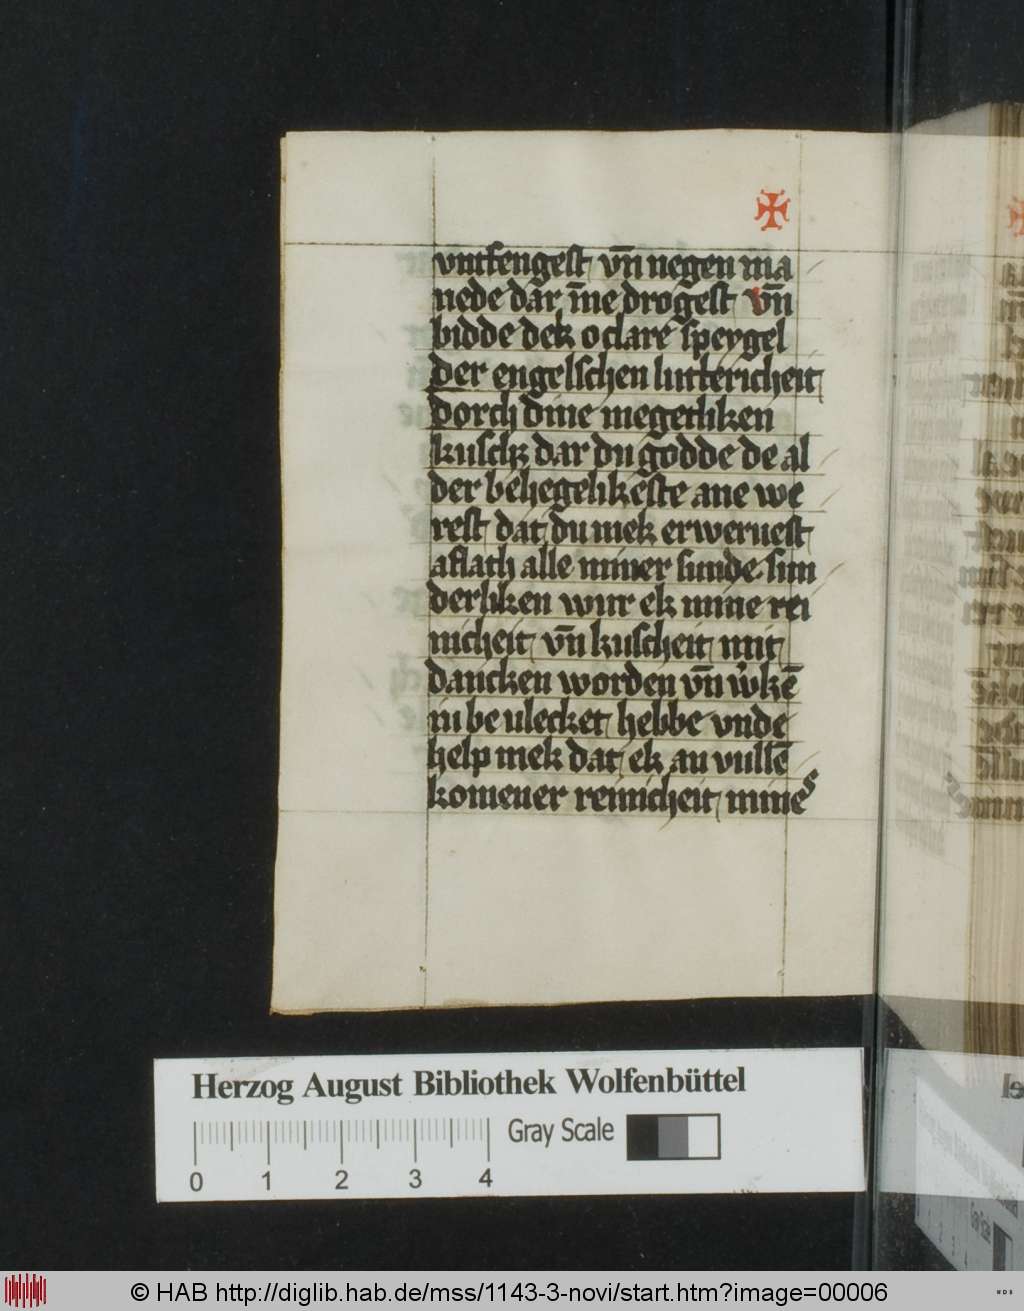 vntfengest vn̄ negen ma
nede dar īne drogest vn̄
bidde dek o clare speygel
der engelschen luttericheit
dorch dine megetliken
kuschz dar du godde de al
der behegelikeste ane we
rest dat du mek erweruest
aflath alle miner sunde sun
derliken wur ek mine rei
nicheit vn̄ kuscheit mit
dancken worden vn̄ w̉kē
in be ulecket hebbe vnde
help mek dat ek an vullē
komener reinicheit mines
Herzog August Bibliothek Wolfenbüttel
Gray Scale
0 1 2 3 4
© HAB http://diglib.hab.de/mss/1143-3-novi/start.htm?image=00006